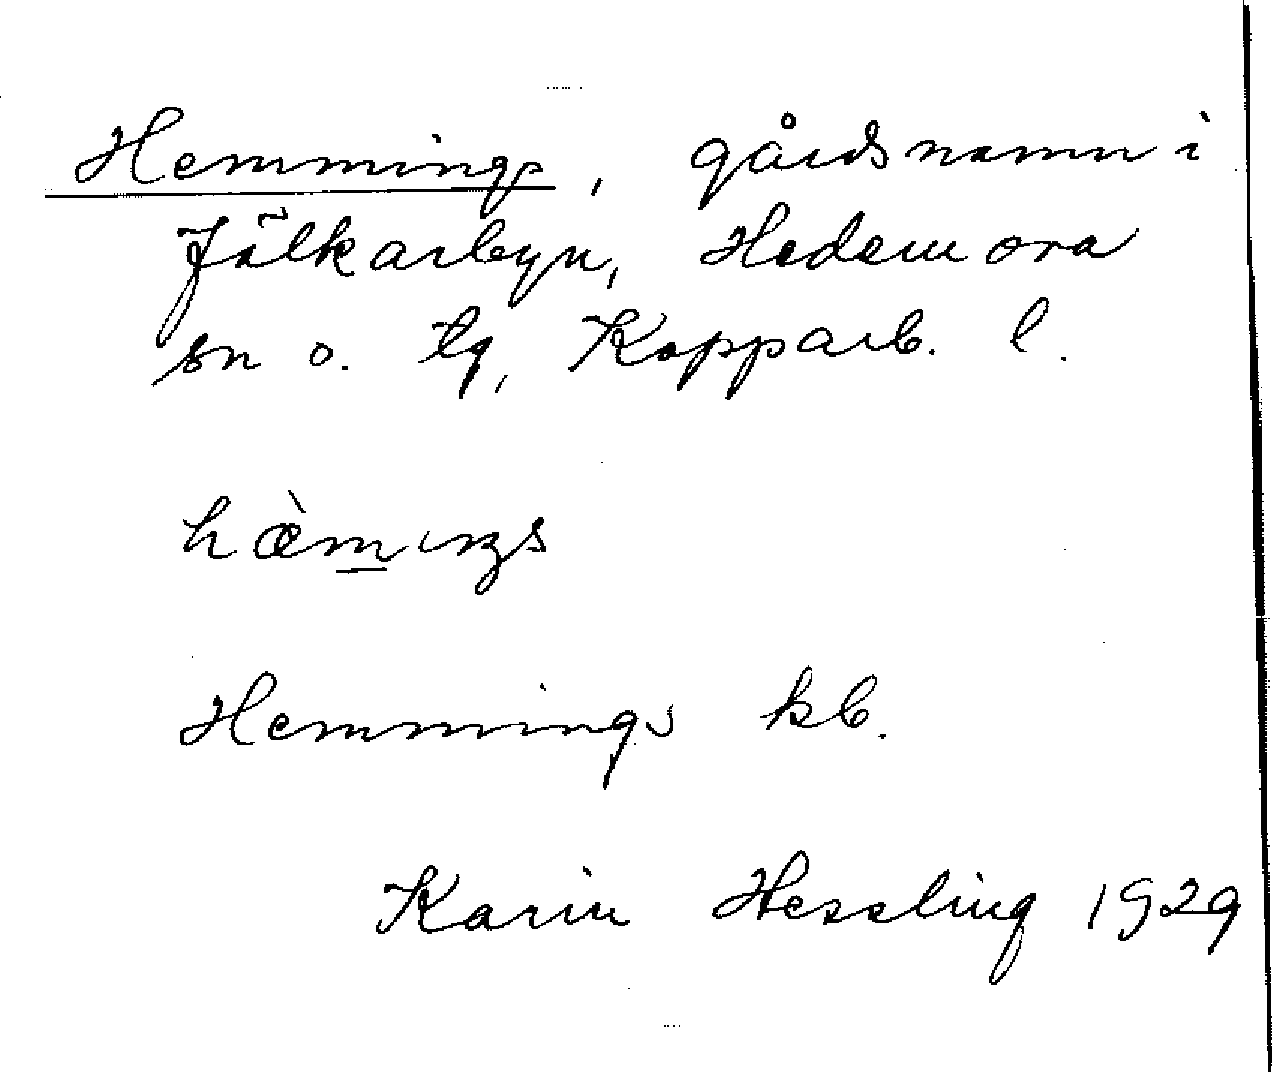 Hemmings, gårdsnamn i
Jälkarbyn, Hedemora
sn o. tg, Kopparb. l.
hæ̀m̲ɩŋs
Hemmings kb.
Karin Hessling 1929